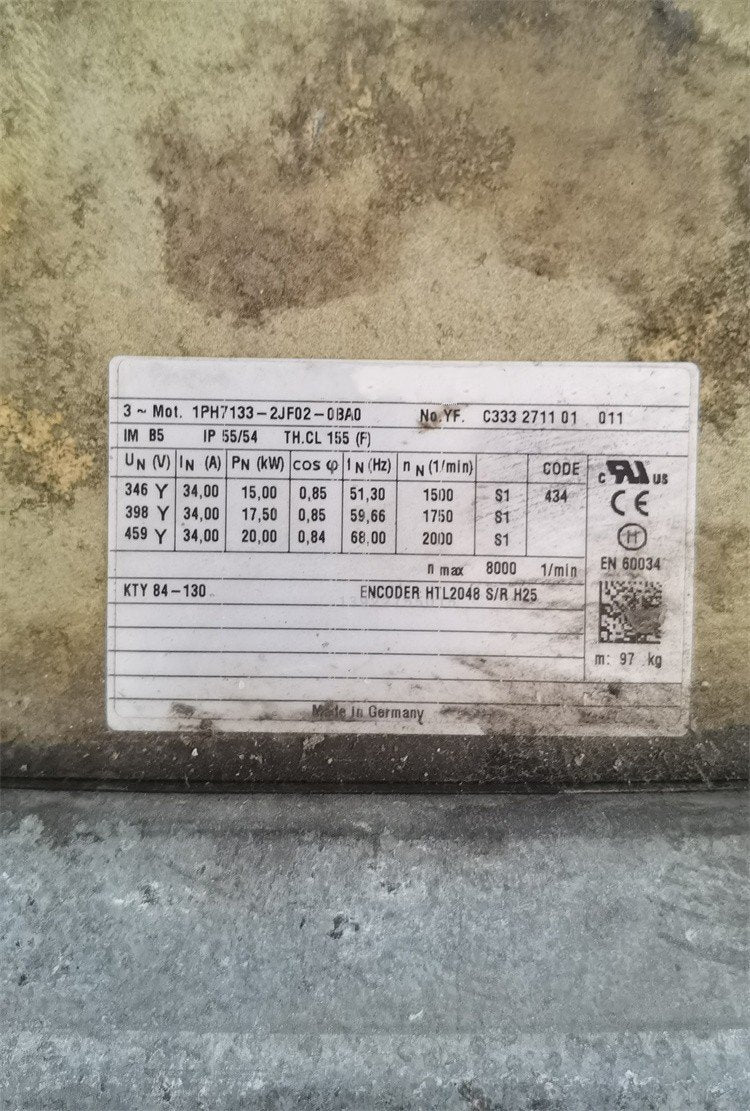 3 ~ Mot. 1PH7133-2JF02-0BA0 No.YF. C333 2711 01 011
IM B5 IP 55/54 TH.CL 155 (F)
UN (V) IN (A) PN (kW) cos φ fN (Hz) nN (1/min) CODE
346 Y 34,00 15,00 0,85 51,30 1500 S1 434
398 Y 34,00 17,50 0,85 59,66 1750 S1
459 Y 34,00 20,00 0,84 68,00 2000 S1
n max 8000 1/min
KTY 84-130 ENCODER HTL2048 S/R H25
Made in Germany
c RU us
CE
H
EN 60034
m: 97 kg